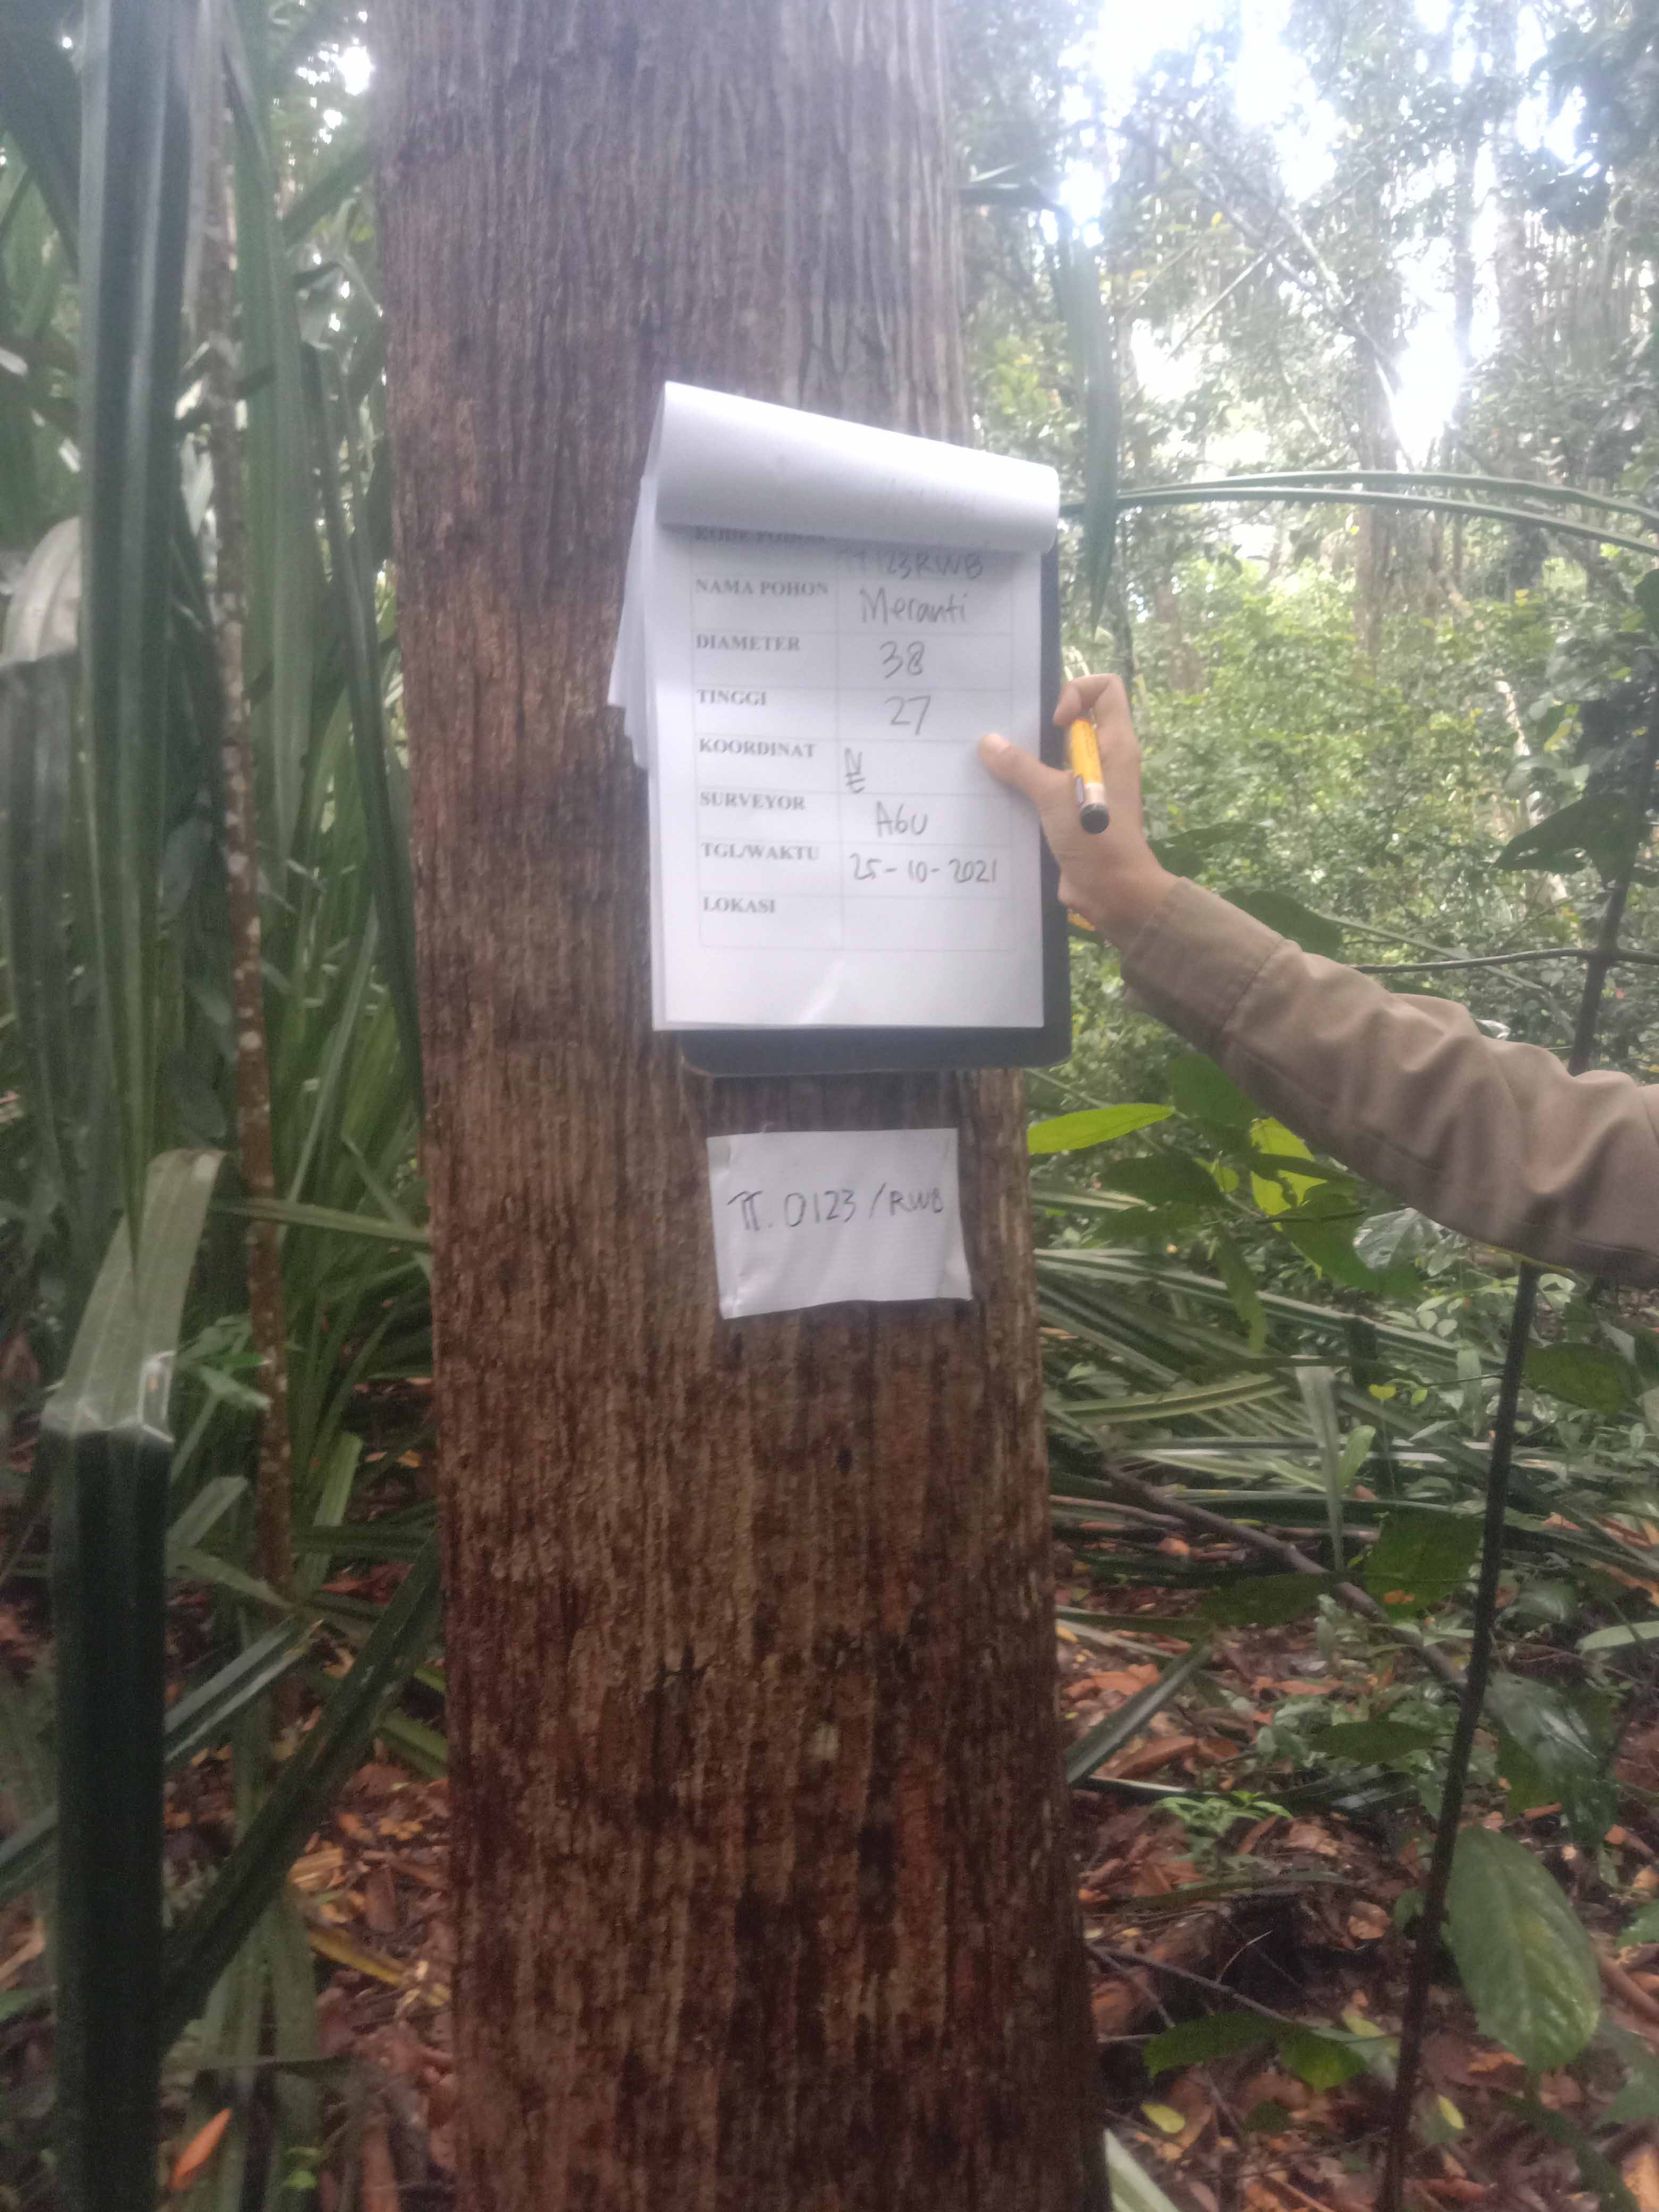 KODE POHON 123RWB
NAMA POHON Meranti
DIAMETER 38
TINGGI 27
KOORDINAT N
E
SURVEYOR Abu
TGL/WAKTU 25-10-2021
LOKASI
TT. 0123/RWB